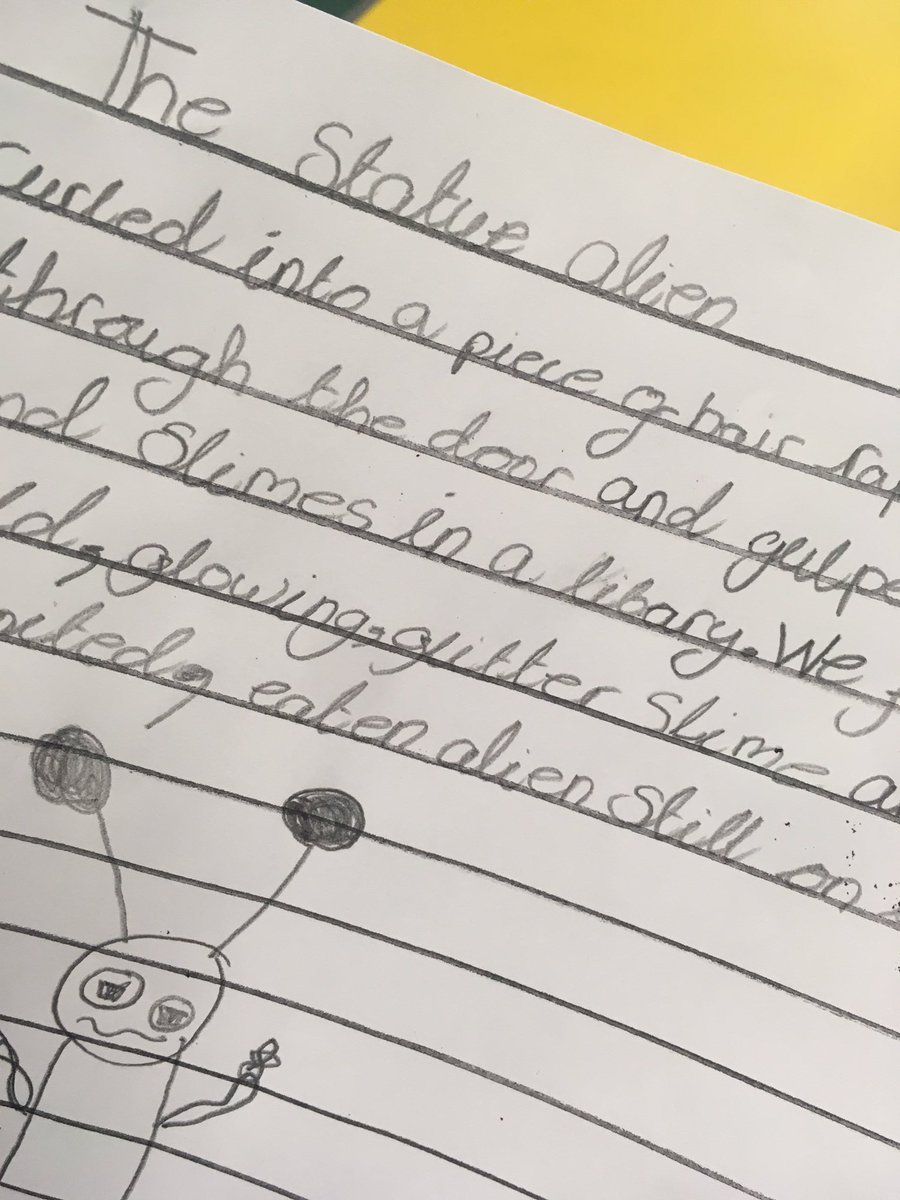 The Statue alien
curled into a piece of hair
through the door and
Slimes in a libary. We
glowing, glitter Slime
eaten alien Still on